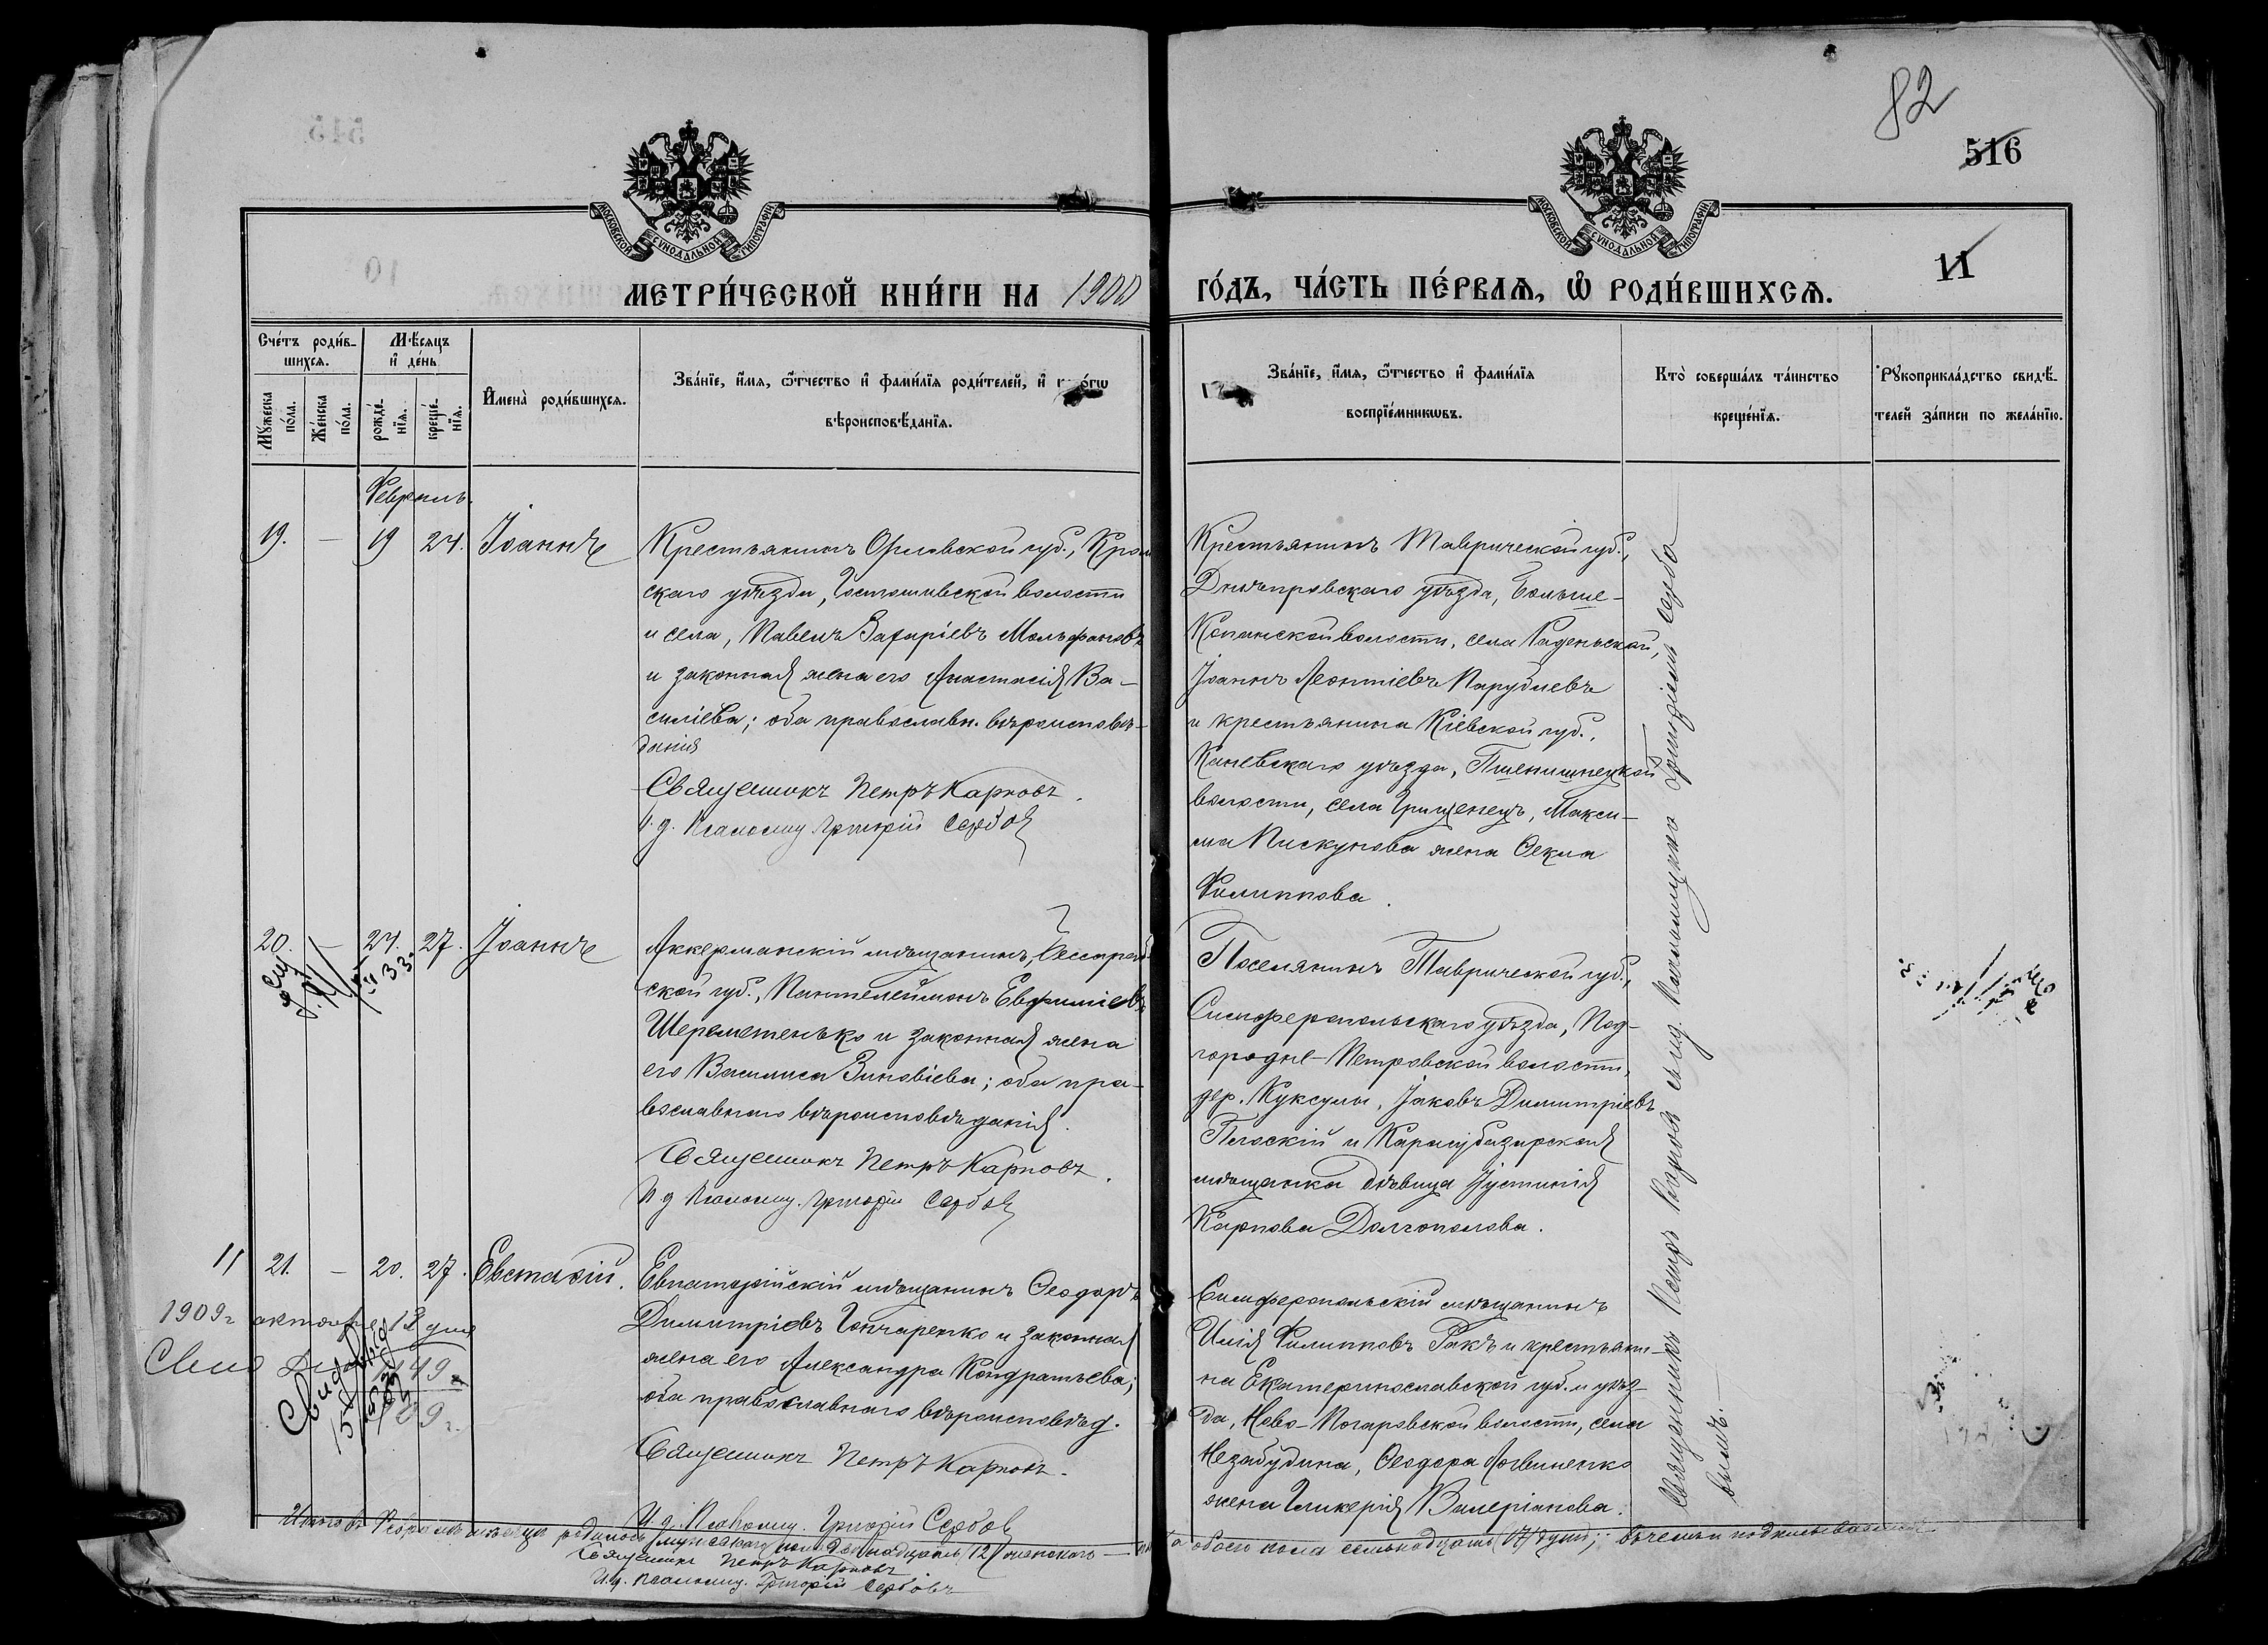 82
516
11
МОСКОВСКОЙ СѴНОДАЛЬНОЙ ТИПОГРАФІИ
МОСКОВСКОЙ СѴНОДАЛЬНОЙ ТИПОГРАФІИ
МЕТРИ́ЧЕСКОЙ КНИ́ГИ НА 1900
ГО́ДЪ, ЧА́СТЬ ПЕ́РВАѦ, Ѡ РОДИ́ВШИХСѦ.
Сче́тъ роди́в-
шихсѧ.
Мꙋ́жеска
по́ла.
Же́нска
по́ла.
Мѣ́сѧцъ
и҆ де́нь
рожде́-
нїѧ.
креще́-
нїѧ.
И҆мена̀ роди́вшихсѧ.
Зва́нїе, и҆́мѧ, ѻ҆́тчество и҆ фами́лїѧ роди́телей, и҆
вѣроисповѣ́данїѧ.
Зва́нїе, и҆́мѧ, ѻ҆́тчество и҆ фами́лїѧ
воспрїе́мникѡвъ.
Кто̀ соверша́лъ та́инство
креще́нїѧ.
Рꙋкоприкла́дство свидѣ́-
телей за́писи по жела́нїю.
Февраль.
19. — 19 24. Іоаннъ
Крестьянинъ Орловской губ., Кром
скаго уѣзда, Гостомльской волости
и села, Павелъ Захаріевъ Мольфановъ
и законная жена его Анастасія Ва-
силіева; оба православн. вѣроисповѣ-
данія
Священникъ Петръ Карповъ.
И. д. Псаломщ. Григорій Сербовъ
Крестьянинъ Таврической губ.,
Днѣпровскаго уѣзда, Больше-
Копанской волости, села Раденьской,
Іоаннъ Леонтіевъ Парубаевъ
и крестьянина Кіевской губ.,
Каневскаго уѣзда, Пшенишнецкой
волости, села Грищенецъ, Макси-
ма Пискунова жена Ѳекла
Филиппова.
20. — 24. 27. Іоаннъ
Аккерманскій мѣщанинъ, Бессараб-
ской губ., Пантелеймонъ Евфиміевъ
Шереметенько и законная жена
его Василиса Зиновіева; оба пра-
вославнаго вѣроисповѣданія.
Священникъ Петръ Карповъ.
И д Псаломщ. Григорій Сербовъ
Поселянинъ Таврической губ.,
Симферопольскаго уѣзда, Под-
городне-Петровской волости,
дер. Куксулы, Іаковъ Димитріевъ
Плоскій и Карасубазарская
мѣщанка дѣвица Іустинія
Карпова Долгополова.
11 21. — 20. 27. Евстафій.
1909 г октября 13 дня
1149
09 г.
Евпаторійскій мѣщанинъ Ѳеодоръ
Димитріевъ Гончаренко и законная
жена его Александра Кондратьева;
оба православнаго вѣроисповѣд.
Священникъ Петръ Карповъ.
И. д. Псаломщ. Григорій Сербов
Симферопольскій мѣщанинъ
Илія Филипповъ Ракъ и крестьяни-
на Екатеринославской губ. и уѣз-
да, Ново-Покровской волости, села
Незабудина, Ѳеодора Литвиненко
жена Гликерія Валеріанова.
Священникъ Петръ Карповъ съ и. д. Псаломщика Григоріемъ Сербо
вымъ. —
Итого въ Февралѣ мѣсяцѣ родилось мужескаго пола двѣнадцать /12/ женскаго —
а обоего пола семьнадцать /17/ душъ; въ чемъ и подписываемся
Священникъ Петръ Карповъ
И. д. Псаломщ. Григорій Сербовъ